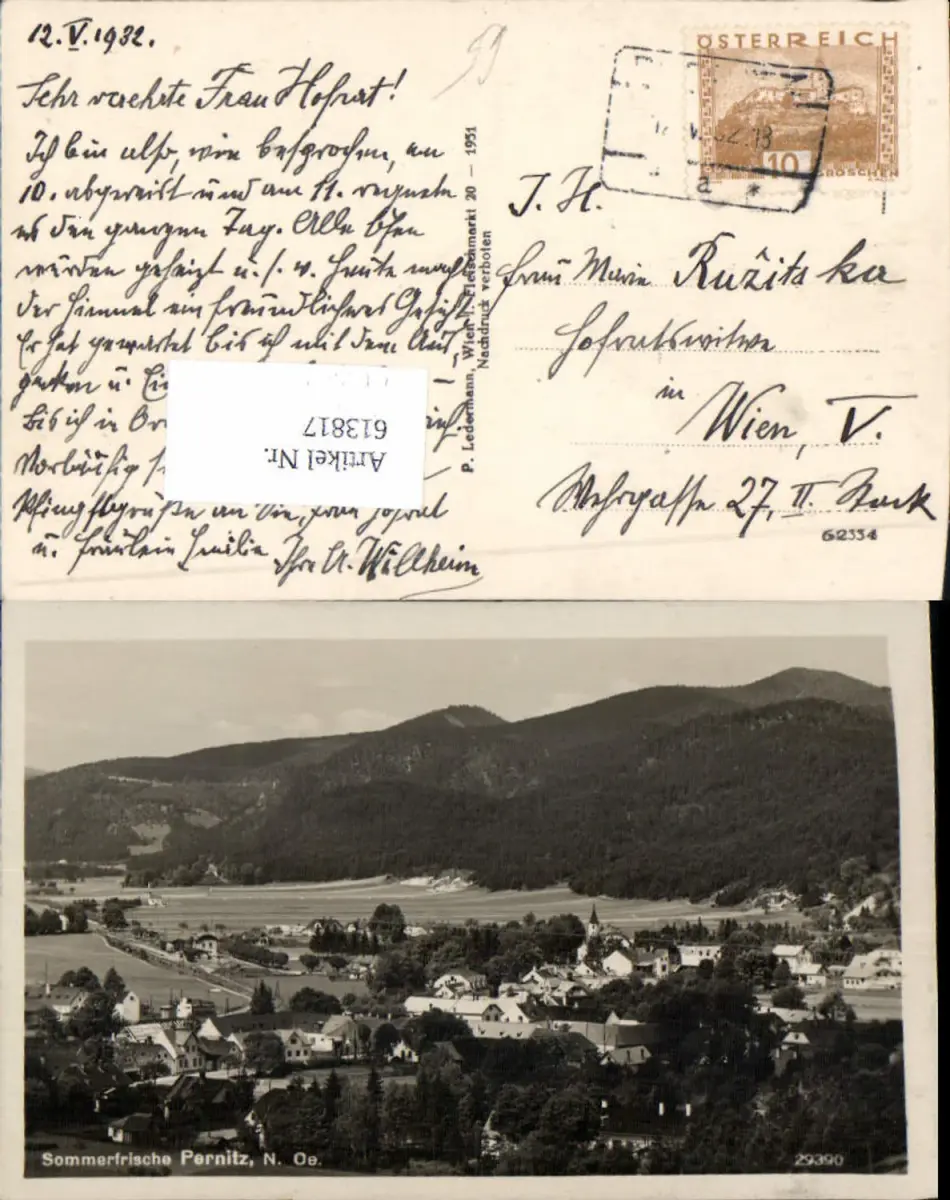 12. V. 1932.
Sehr verehrte Frau Hofrat!
Ich bin also, wie besprochen, am
10. abgereist und am 11. regnete
es den ganzen Tag. Alle Öfen
wurden geheizt u. s. w. Heute macht
der Himmel ein freundliches Gesicht.
Er hat gewartet bis ich mit dem Aus-
packen u.
bis ich in
Vorläufig
Pfingstgrüße an Sie, Frau Hofrat
u. Fräulein Emilie Ihre A. Willheim
59
P. Ledermann, Wien I. Fleischmarkt 20 — 1931
Nachdruck verboten
ÖSTERREICH
10
GROSCHEN
V. 32. 18
a *
I. H.
Frau Marie Ružitska
Hofratswitwe
in
Wien, V.
Wehrgasse 27, II. Stock
62334
Artikel Nr.
613817
Sommerfrische Pernitz, N. Oe.
29390